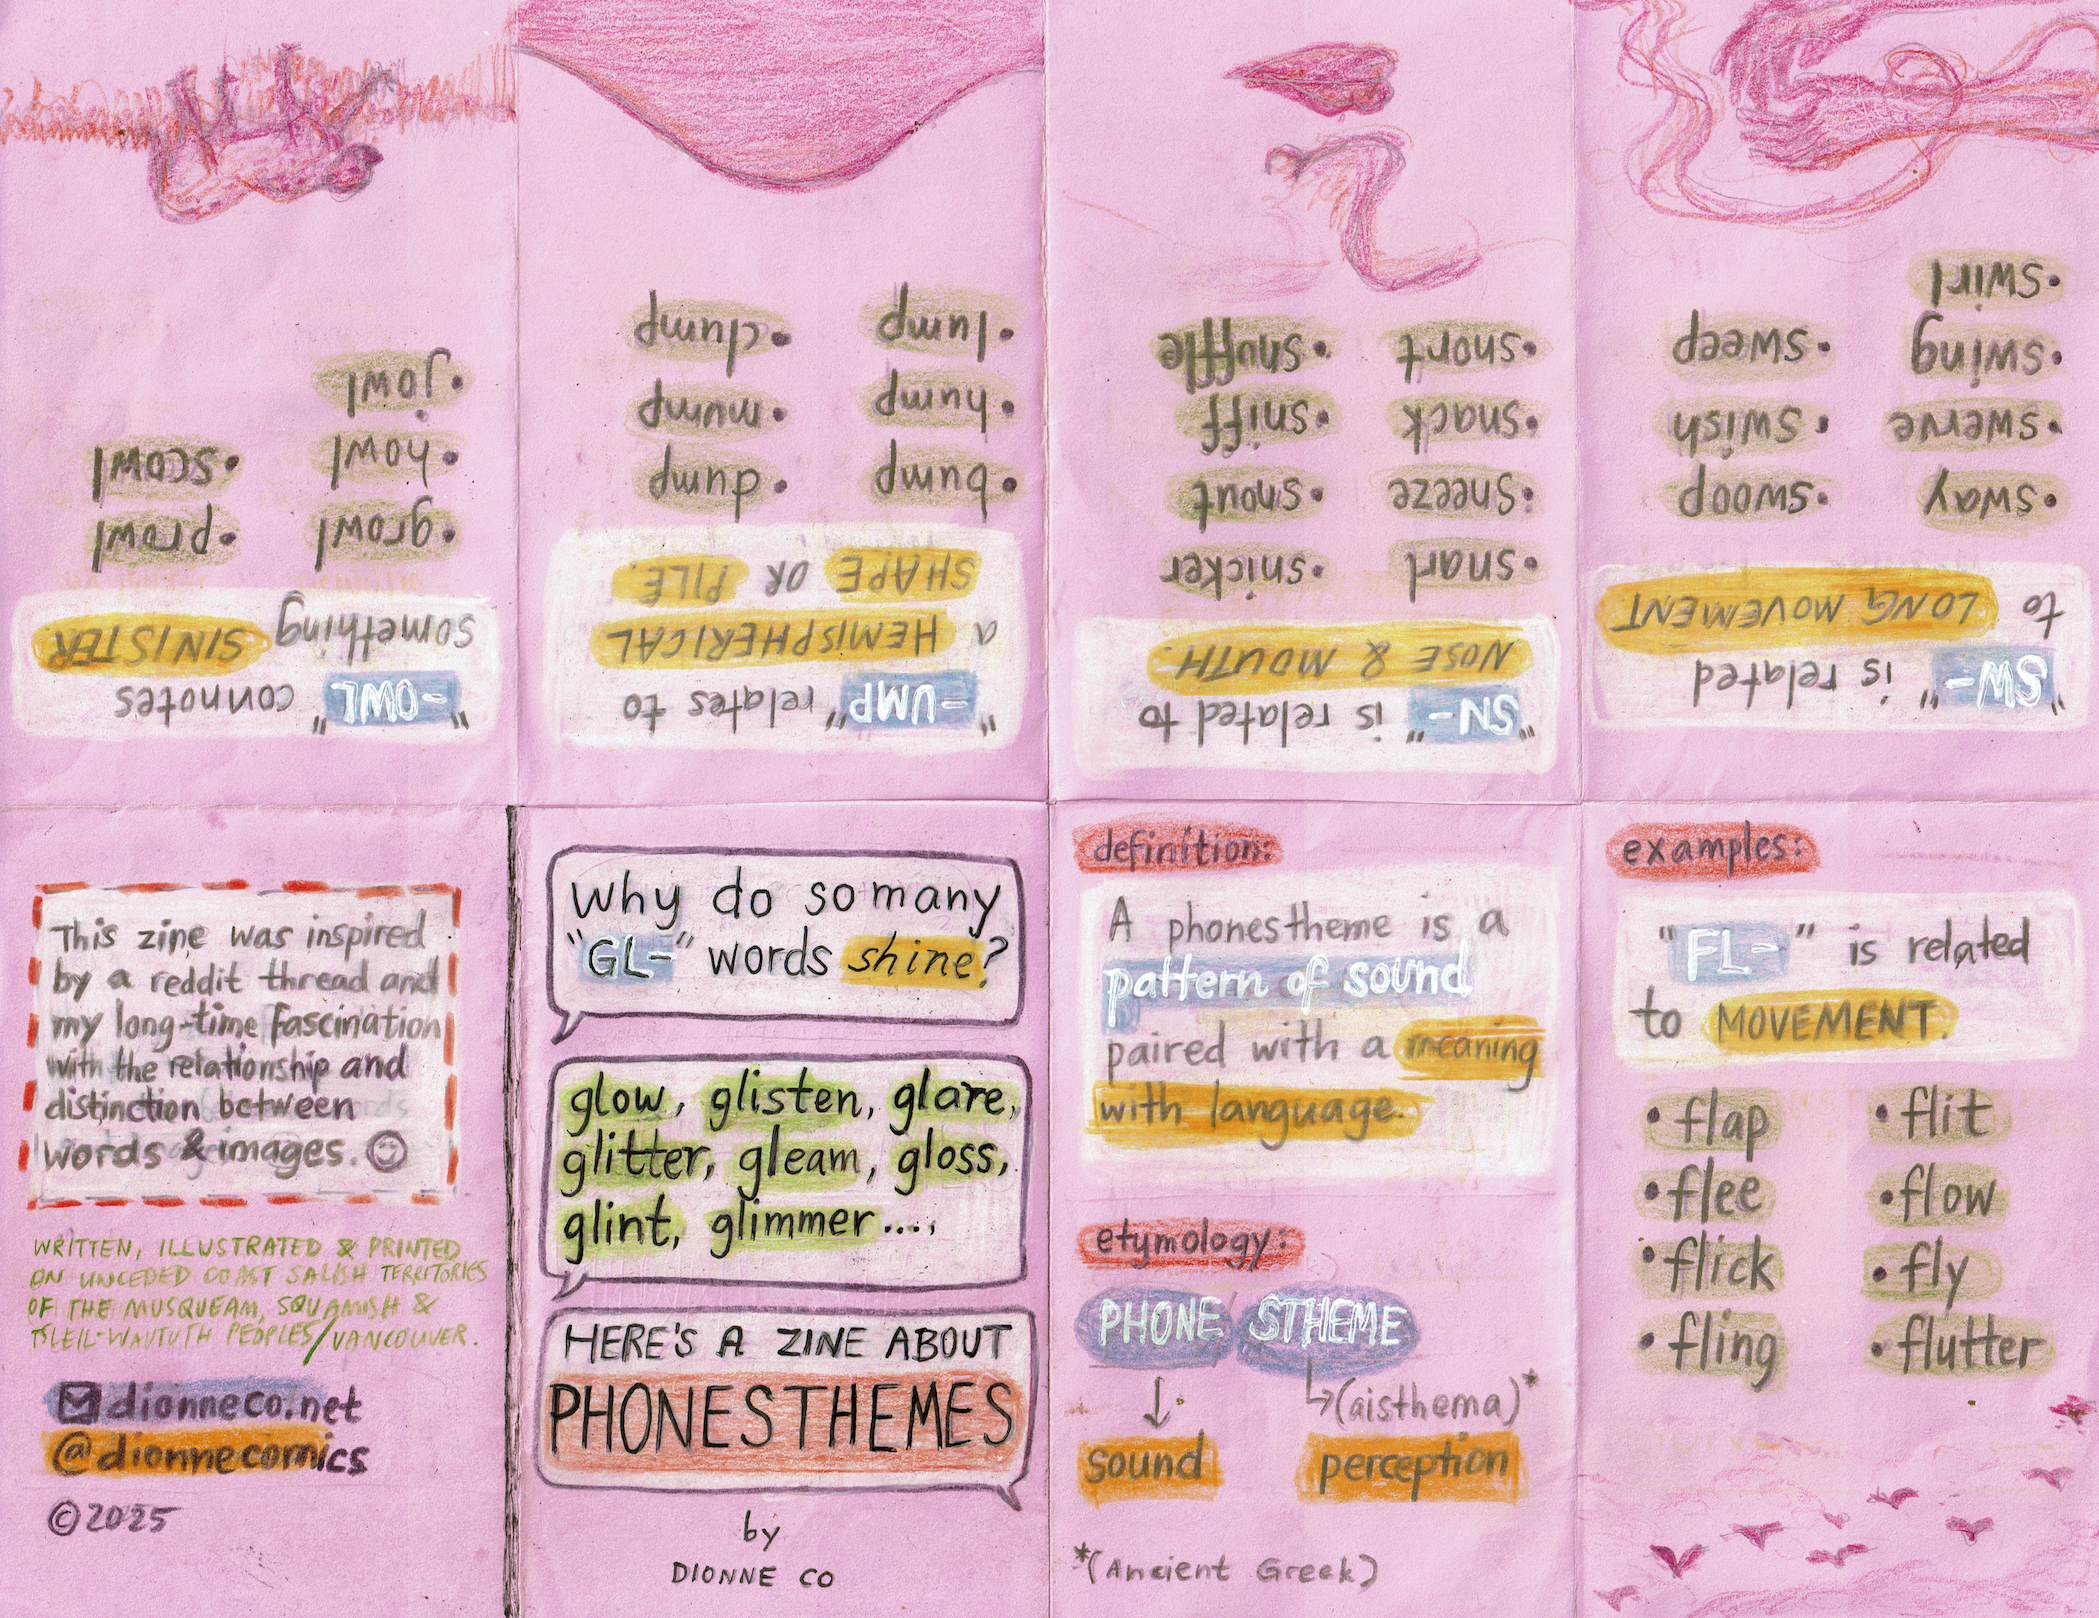 Why do so many
"GL-" words shine?
glow, glisten, glare,
glitter, gleam, gloss,
glint, glimmer....,
HERE'S A ZINE ABOUT
PHONESTHEMES
by
DIONNE CO
definition:
A phonestheme is a
pattern of sound
paired with a meaning
with language.
etymology:
PHONE STHEME
(aisthema)*
sound perception
*(Ancient Greek)
examples:
"FL-" is related
to MOVEMENT.
• flap • flit
• flee • flow
• flick • fly
• fling • flutter
"SW-" is related
to LONG MOVEMENT
• sway • swoop
• swerve • swish
• swing • sweep
• swirl
"SN-" is related to
NOSE & MOUTH.
• snarl • snicker
• sneeze • snout
• snack • sniff
• snort • snuffle
"-UMP" relates to
a HEMISPHERICAL
SHAPE OR PILE.
• bump • dump
• hump • mump
• lump • clump
"-OWL" connotes
something SINISTER
• growl • prowl
• howl • scowl
• jowl
This zine was inspired
by a reddit thread and
my long-time fascination
with the relationship and
distinction between
words & images.
WRITTEN, ILLUSTRATED & PRINTED
ON UNCEDED COAST SALISH TERRITORIES
OF THE MUSQUEAM, SQUAMISH &
TSLEIL-WAUTUTH PEOPLES/VANCOUVER.
dionneco.net
@dionnecomics
©2025